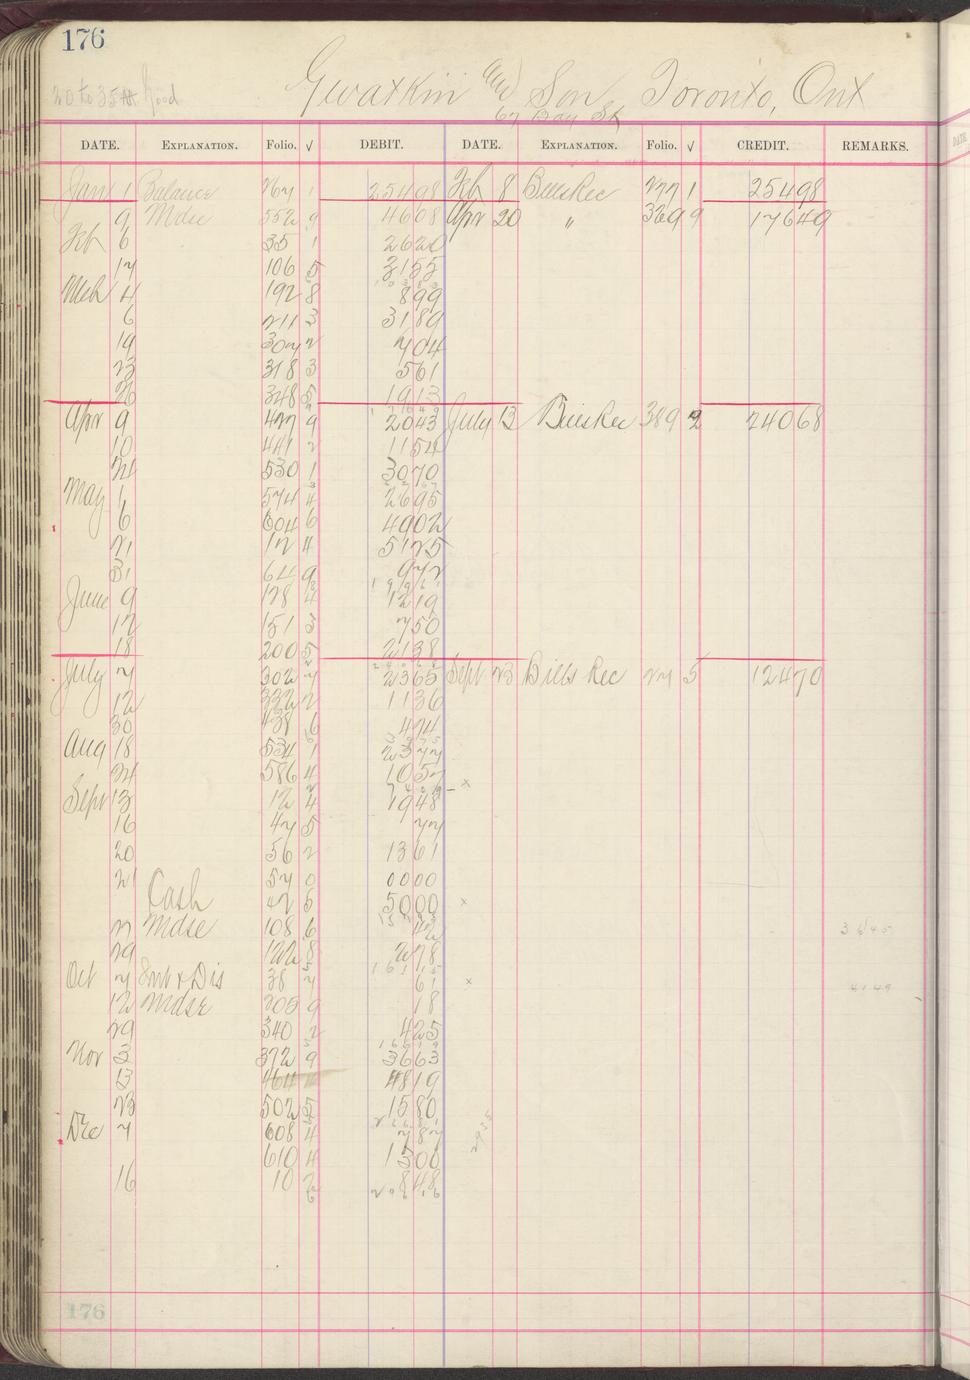 176
20 to 35 Good
Gwatkin and Son Toronto, Ont
67 Bay St
DATE. EXPLANATION. Folio. √ DEBIT. DATE. EXPLANATION. Folio. √ CREDIT. REMARKS.
Jan 1 Balance 764 1 25498 Feb 8 Bills Rec 277 1 25498
9 Mdse 552 9 4608 Apr 20 " 369 9 17649
Feb 6 35 1 2620
17 106 5 3155
Mch 4 192 8 899
6 211 3 3189
19 307 2 704
23 318 3 561
26 348 5 1913
Apr 9 427 9 2043 July 13 Bills Rec 389 2 24068
10 441 2 1154
24 530 1 3070
May 1 574 4 2695
6 604 6 4902
21 12 4 5125
31 64 9 972
June 9 128 4 1219
12 151 3 750
18 200 5 2138
July 7 302 7 2365 Sept 23 Bills Rec 27 5 12470
12 332 2 1136
30 438 6 474
Aug 18 534 1 2377
24 586 4 1057
Sept 13 12 4 1948
16 47 5 77
20 56 2 1361
21 57 0 0000
Cash 42 6 5000 x
27 Mdse 108 6 42
29 122 8 278
Oct 7 Int & Dis 38 7 61 x
12 Mdse 205 9 18
29 340 2 425
Nov 3 372 9 3663
13 464 4819
23 502 5 1580
Dec 7 608 4 787
610 4 1300
16 10 2 848
176